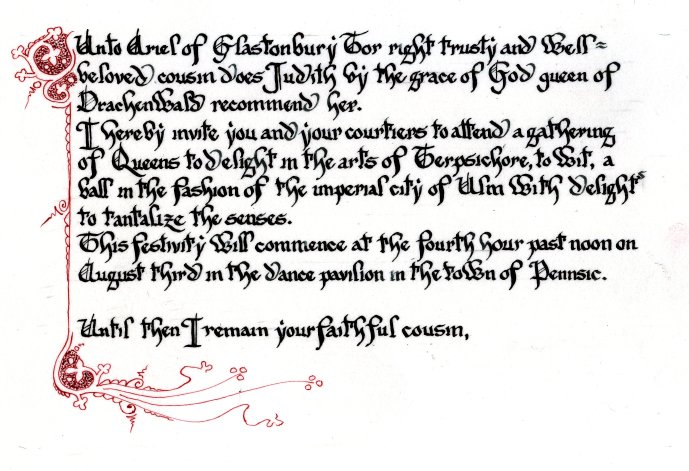 Unto Ariel of Glastonbury Tor right trusty and well=
beloved cousin does Judith by the grace of God queen of
Drachenwald recommend her.
I hereby invite you and your courtiers to attend a gathering
of Queens to delight in the arts of Terpsichore, to wit, a
ball in the fashion of the imperial city of Ulm with delights
to tantalize the senses.
This festivity will commence at the fourth hour past noon on
August third in the dance pavilion in the town of Pennsic.
Until then I remain your faithful cousin,